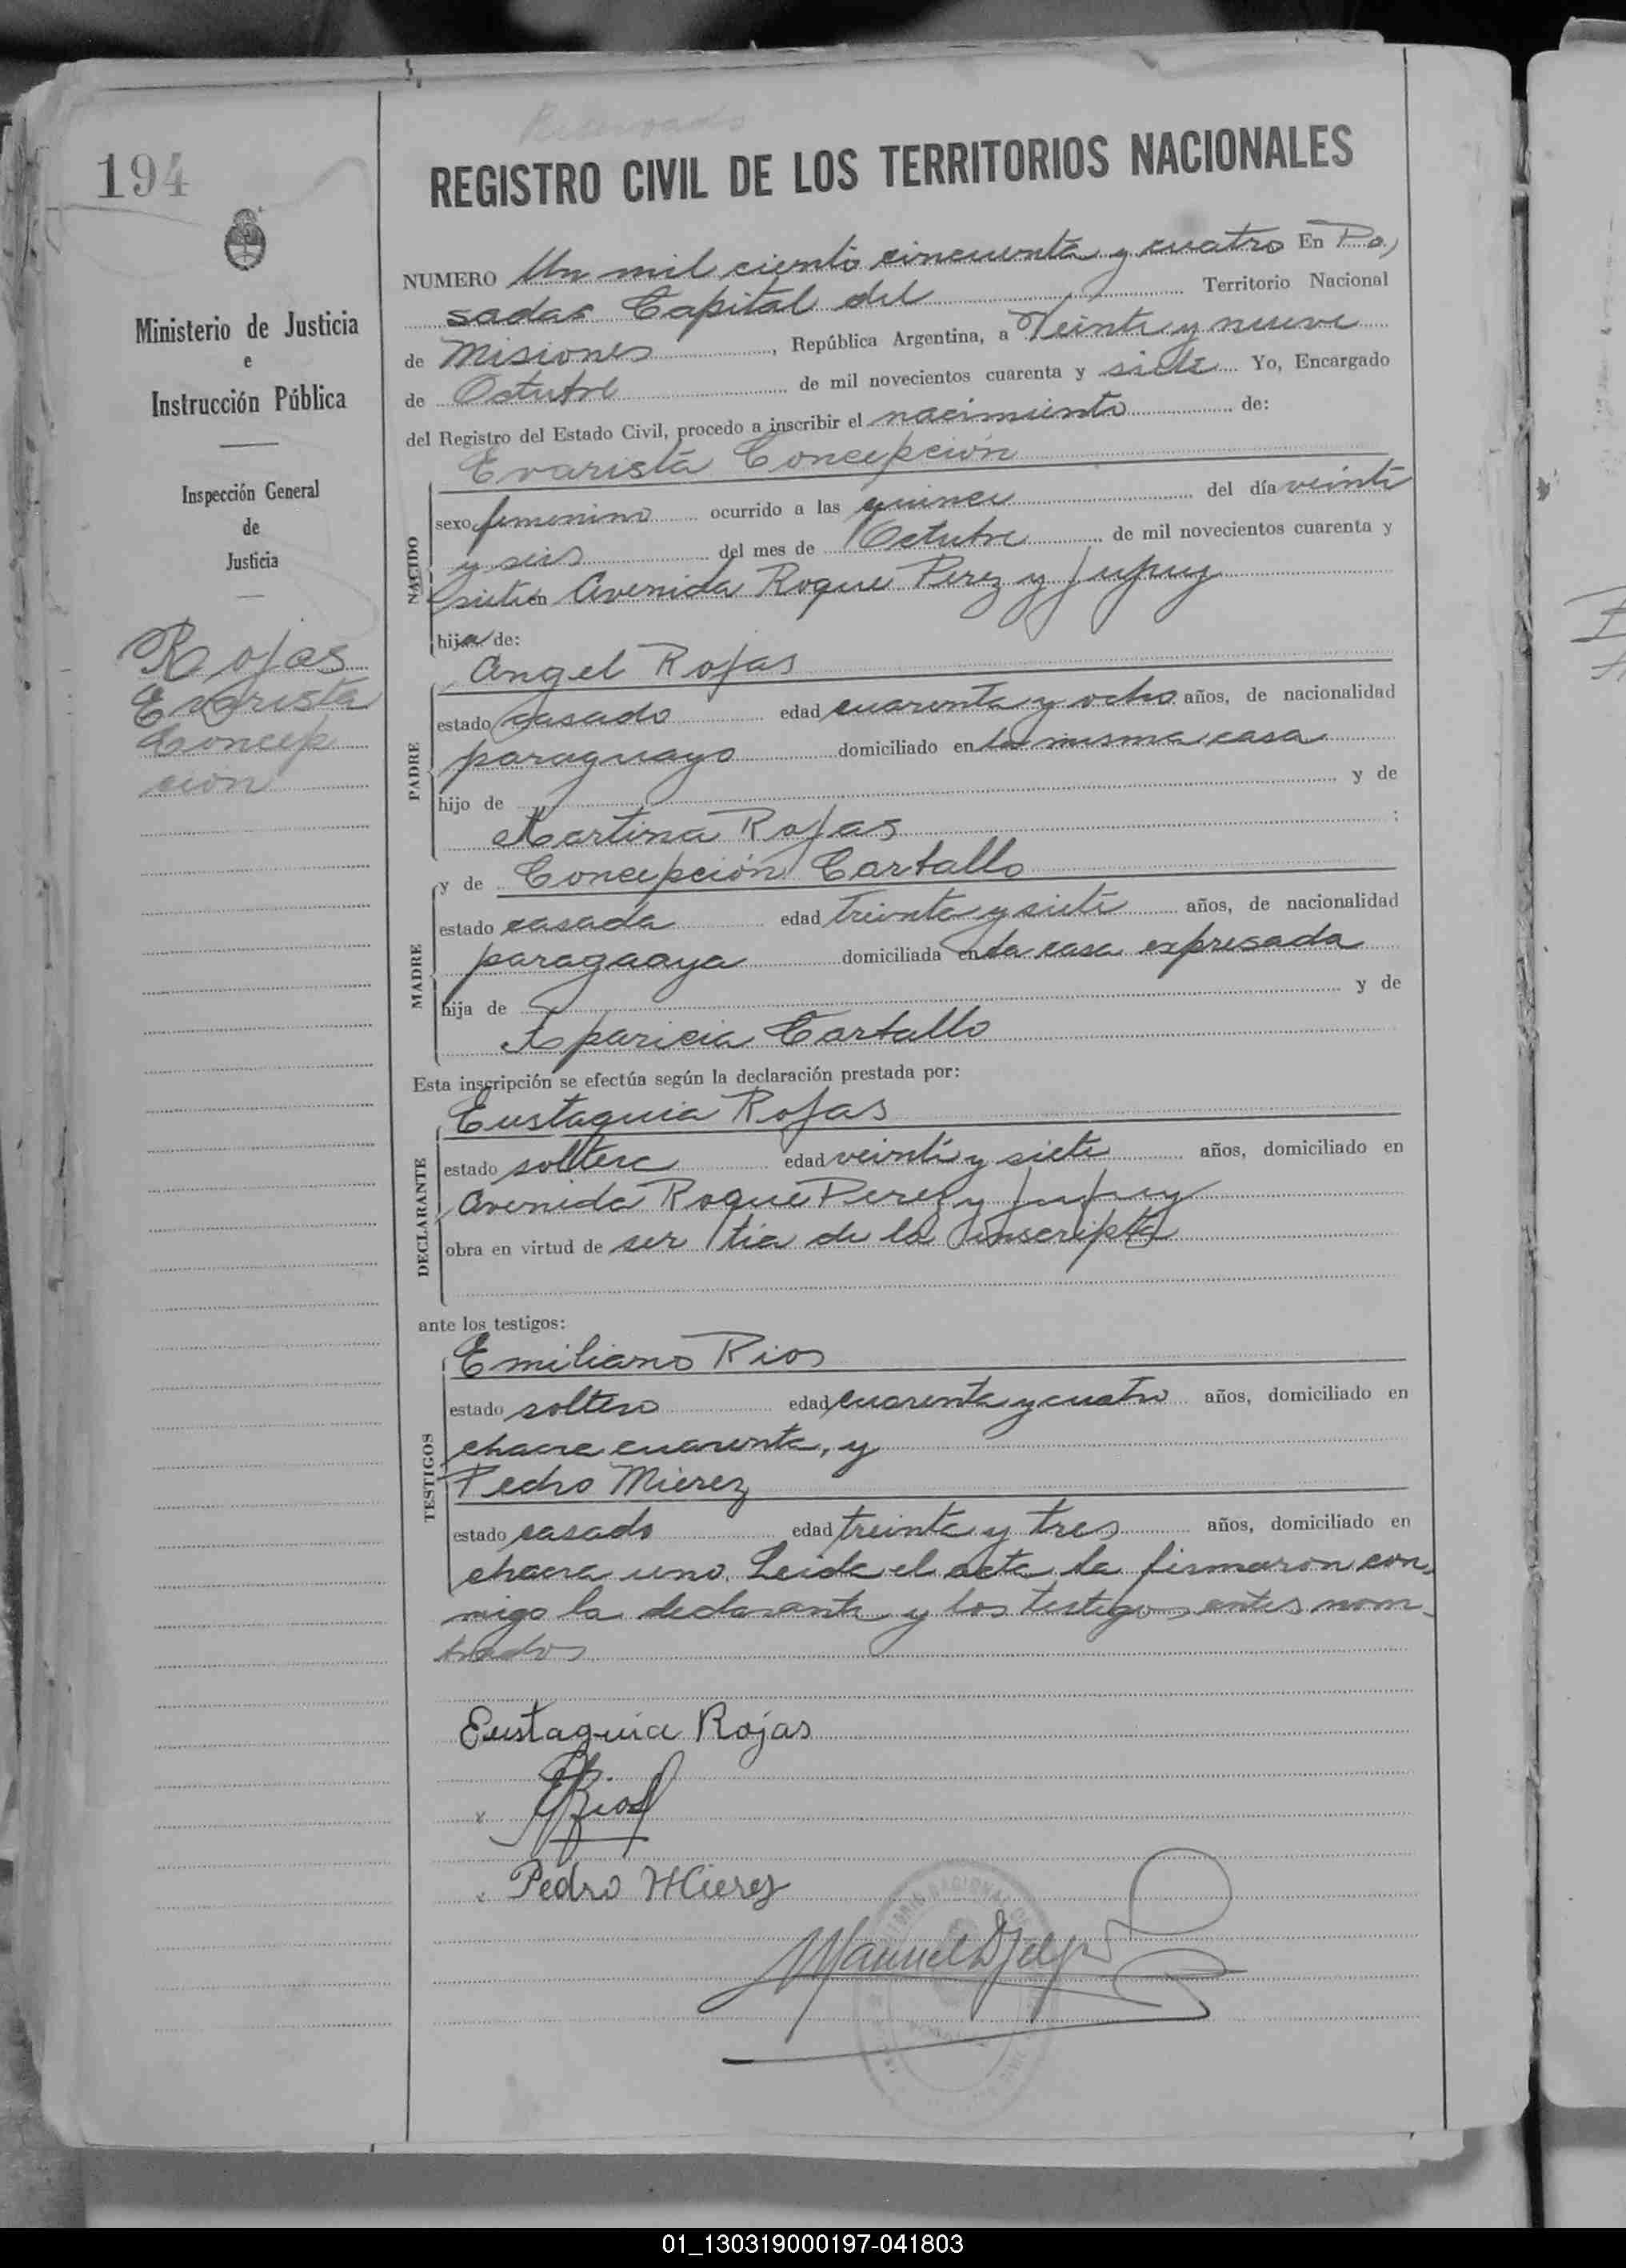 194
REGISTRO CIVIL DE LOS TERRITORIOS NACIONALES
NUMERO Un mil ciento cincuenta y cuatro En Po,
sadas Capital del Territorio Nacional
de Misiones, República Argentina, a Veinte y nueve
de Octubre de mil novecientos cuarenta y siete Yo, Encargado
del Registro del Estado Civil, procedo a inscribir el nacimiento de:
Ministerio de Justicia
e
Instrucción Pública
Inspección General
de
Justicia
Rojas
Evarista
Concep
cion
NACIDO
Evarista Concepción
sexo femenino ocurrido a las quince del día veinti
y seis del mes de Octubre de mil novecientos cuarenta y
siete en Avenida Roque Perez y Jujuy
hija de:
PADRE
Angel Rojas
estado casado edad cuarenta y ocho años, de nacionalidad
paraguayo domiciliado en la misma casa
hijo de y de
Martina Rojas :
MADRE
y de Concepción Cartallo
estado casada edad treinta y siete años, de nacionalidad
paraguaya domiciliada en la casa expresada
hija de y de
Aparicia Cartallo
Esta inscripción se efectúa según la declaración prestada por:
DECLARANTE
Eustaquia Rojas
estado soltera edad veinti y siete años, domiciliado en
Avenida Roque Perez y Jujuy
obra en virtud de ser tia de la inscripta
ante los testigos:
TESTIGOS
Emiliano Rios
estado soltero edad cuarenta y cuatro años, domiciliado en
chacra cuarenta, y
Pedro Mierez
estado casado edad treinta y tres años, domiciliado en
chacra uno. Leida el acta la firmaron con,
migo la declarante y los testigos antes nom-
brados
Eustaquia Rojas
ERios
Pedro Mierez
01_130319000197-041803